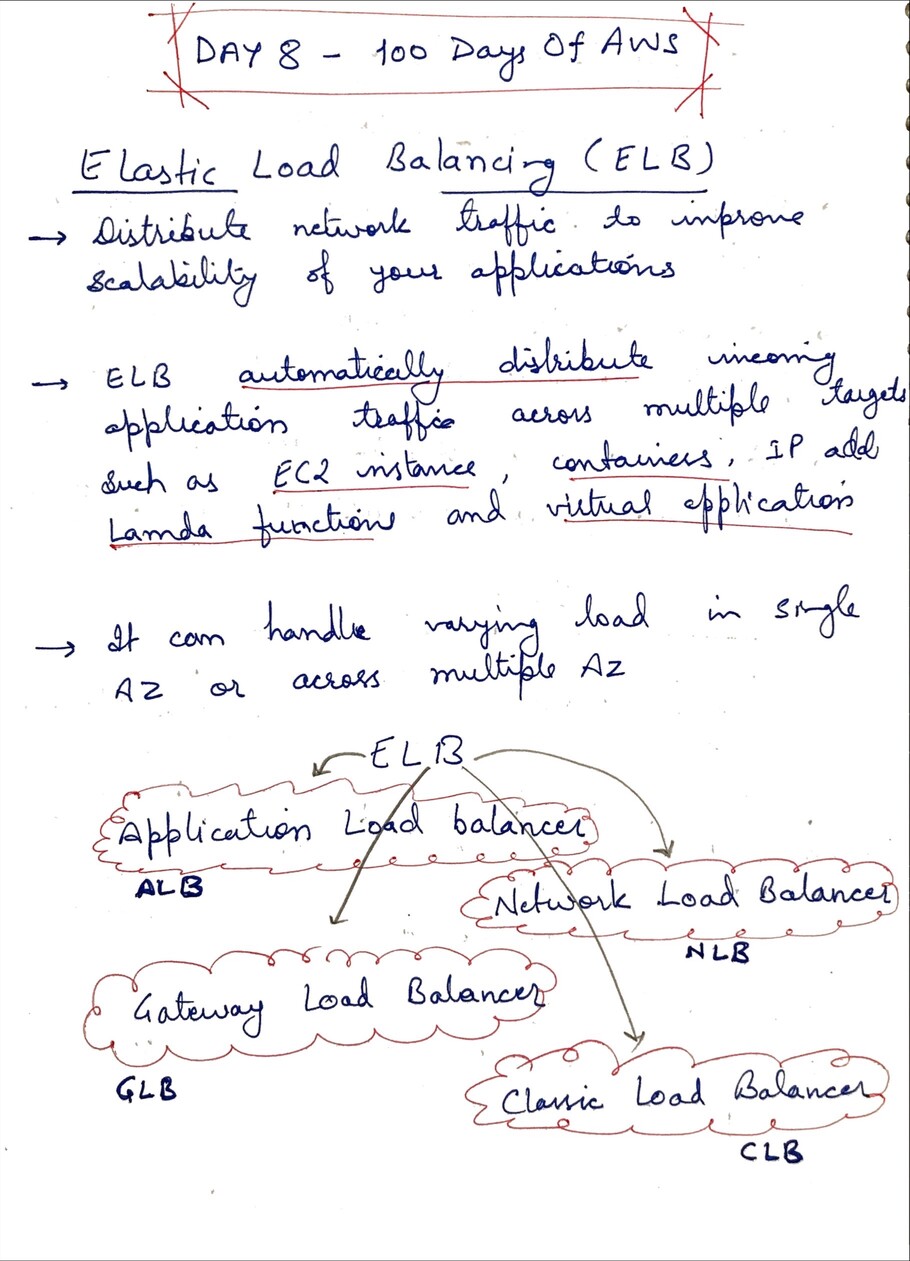 DAY 8 - 100 Days Of AWS
Elastic Load Balancing (ELB)
→ Distribute network traffic to improve
scalability of your applications
→ ELB automatically distribute incoming
application traffic across multiple targets
such as EC2 instance, containers, IP add
Lamda functions and virtual application
→ It can handle varying load in single
AZ or across multiple AZ
ELB
Application Load balancer
ALB
Network Load Balancer
NLB
Gateway Load Balancer
GLB
Classic Load Balancer
CLB